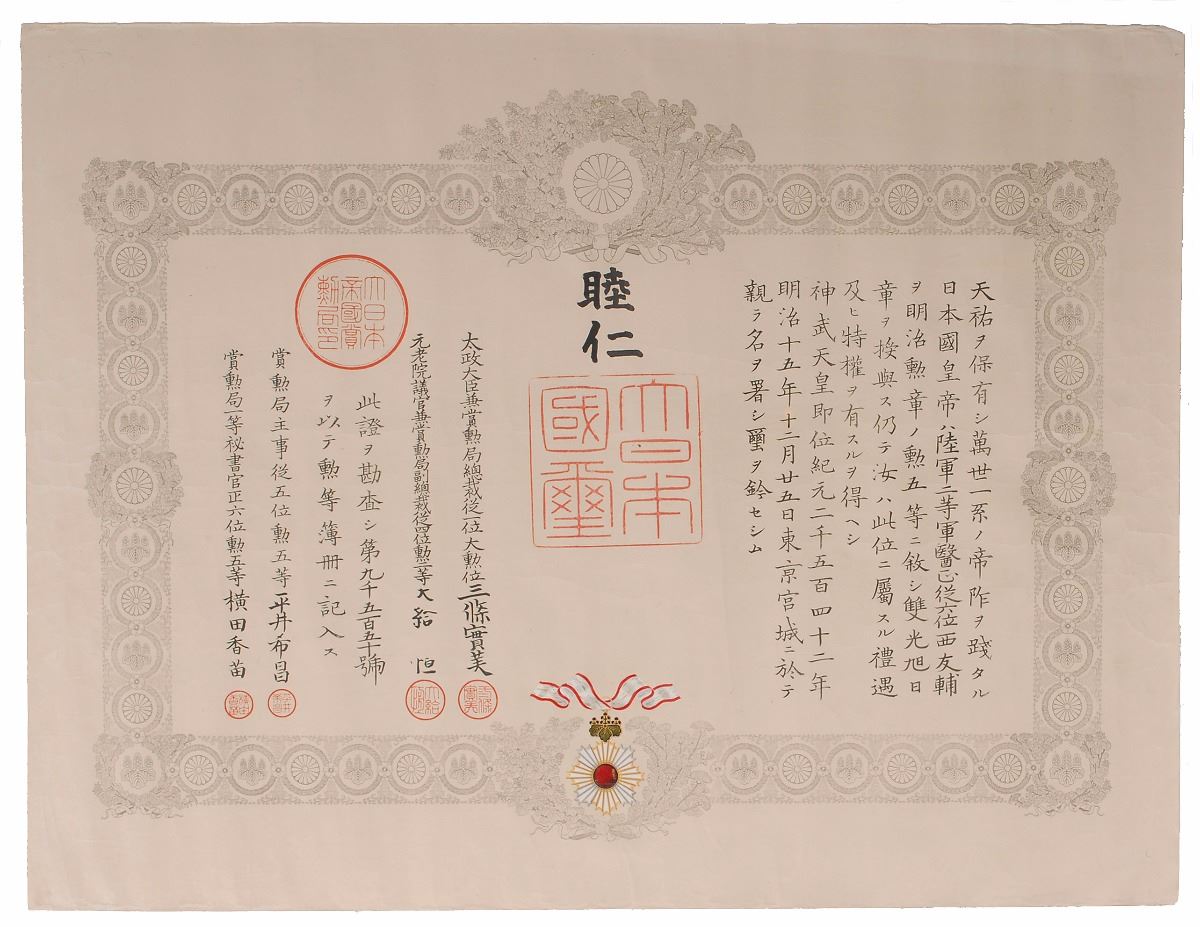 天祐ヲ保有シ萬世一系ノ帝阼ヲ踐タル
日本國皇帝ハ陸軍二等軍醫正從六位西友輔
ヲ明治勲章ノ勲五等ニ敘シ雙光旭日
章ヲ授與ス仍テ汝ハ此位ニ屬スル禮遇
及ヒ特權ヲ有スルヲ得ヘシ
神武天皇即位紀元二千五百四十二年
明治十五年十二月廿五日東亰宮城ニ於テ
親ラ名ヲ署シ璽ヲ鈐セシム
睦仁
大日本
國璽
太政大臣兼賞勲局總裁從一位大勲位三條實美
元老院議官兼賞勲局副總裁從四位勲二等大給恒
大日本
帝國賞
勲局印
此證ヲ勘査シ第九千五百五十號
ヲ以テ勲等簿冊ニ記入ス
賞勲局主事從五位勲五等平井希昌
賞勲局一等祕書官正六位勲五等橫田香苗